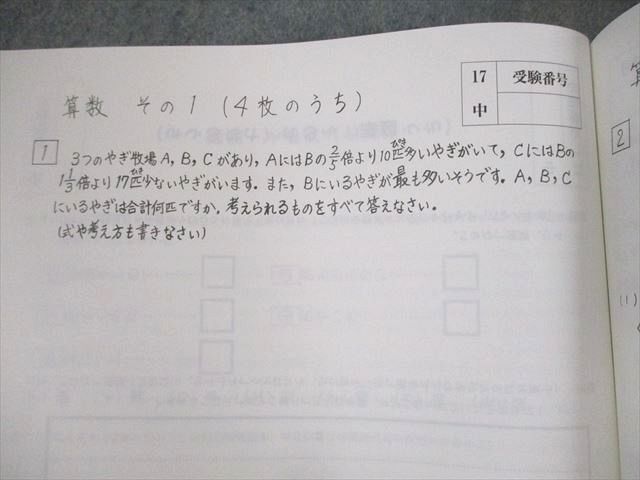 17
中
受験番号
算数 その1 (4枚のうち)
1
3つのやぎ牧場A, B, Cがあり, AにはBの2/5倍より10匹多いやぎがいて, CにはBの
1 1/3倍より17匹少ないやぎがいます. また, Bにいるやぎが最も多いそうです. A, B, C
にいるやぎは合計何匹ですか. 考えられるものをすべて答えなさい.
(式や考え方も書きなさい)
2
(1)